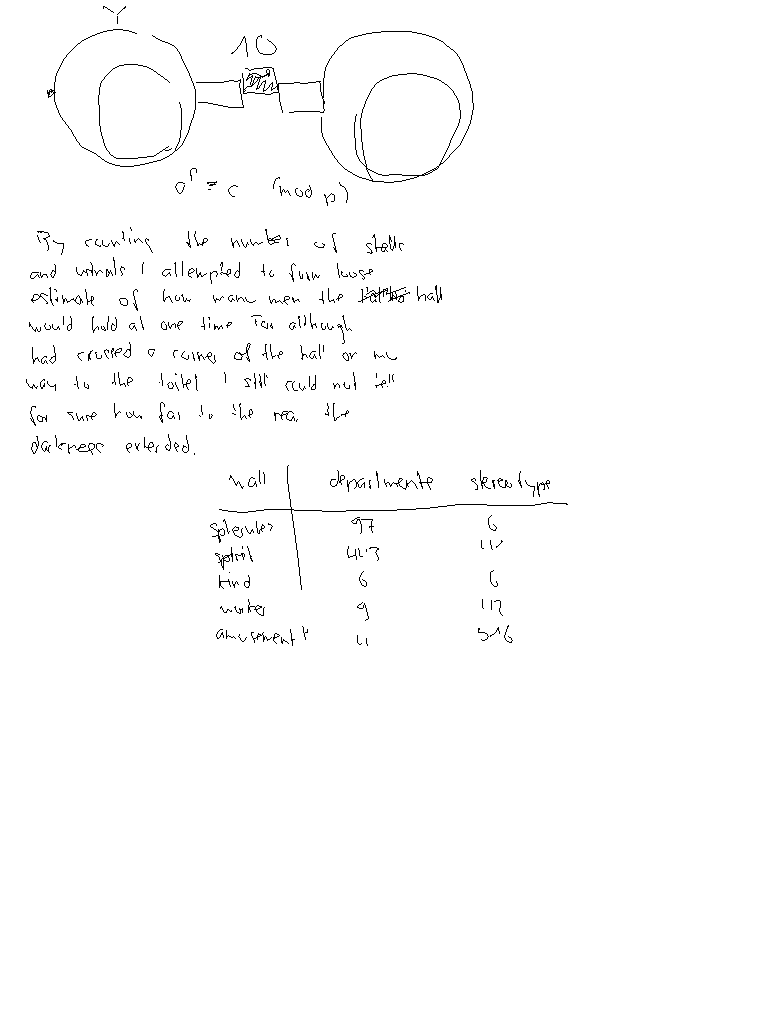 Y
10
a^p = c (mod p)
By counting the number of stalls
and urinals I attempted to form loose
estimate of how many men the hall
would hold at one time For although
had crossed a corner of the hall on my
way to the toilet I still could not tell
for sure how far to the rear the
darkness extended.
hall departments stereotype
97 6
spiral
kind 6 6
worker 9 112
amusement 11 516